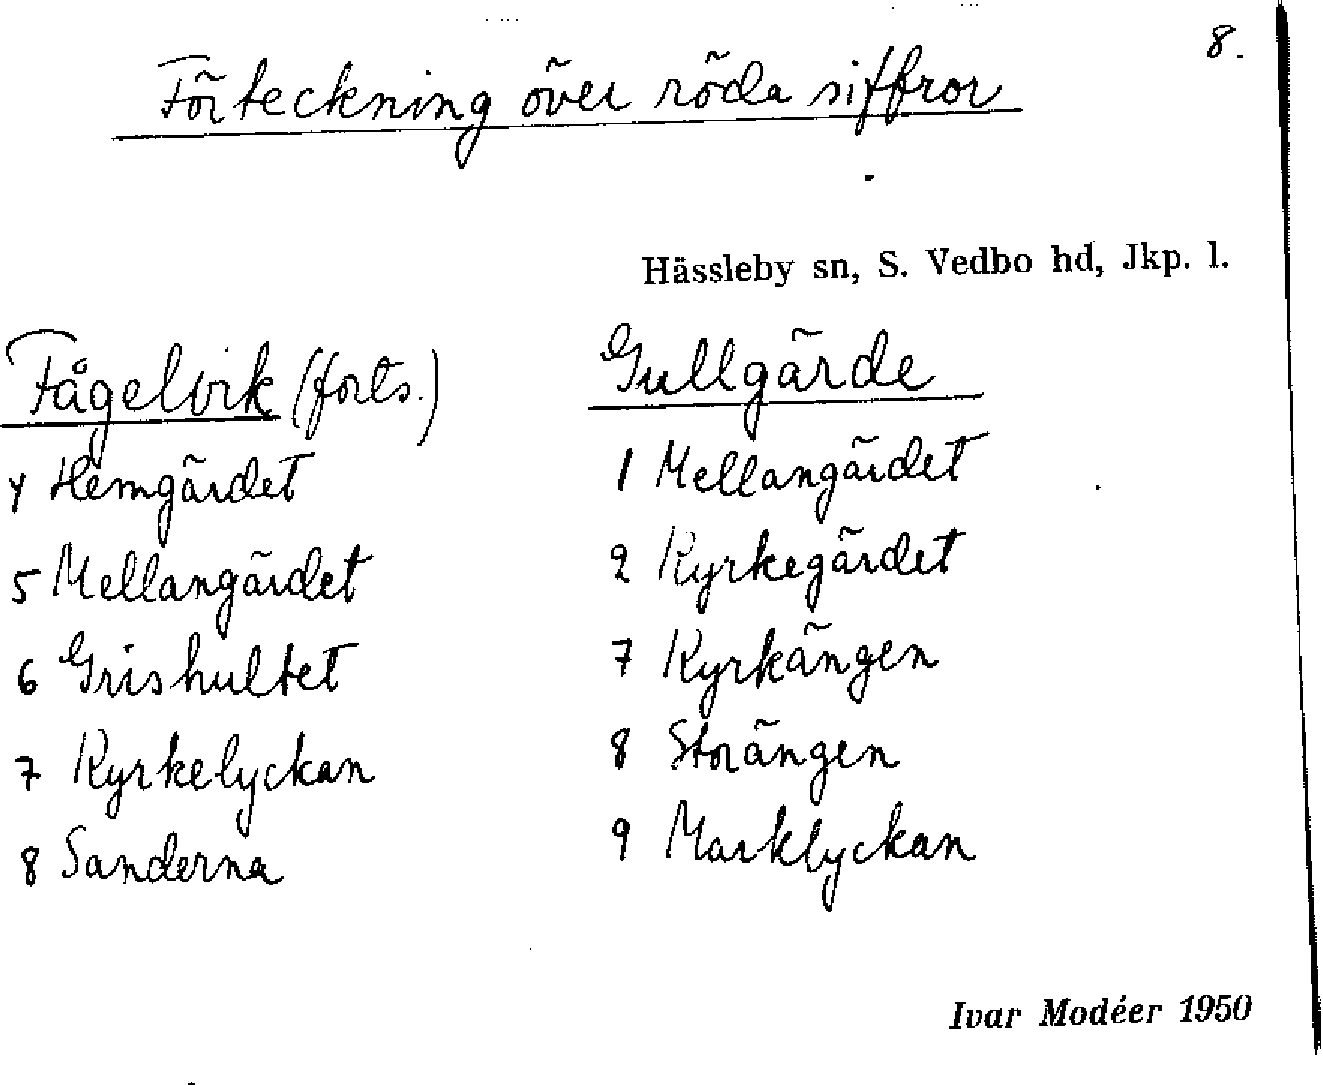 8.
Förteckning över röda siffror
Hässleby sn, S. Vedbo hd, Jkp. l.
Fågelvik (forts.)
4 Hemgärdet
5 Mellangärdet
6 Grishultet
7 Kyrkelyckan
8 Sanderna
Gullgärde
1 Mellangärdet
2 Kyrkegärdet
7 Kyrkängen
8 Storängen
9 Marklyckan
Ivar Modéer 1950